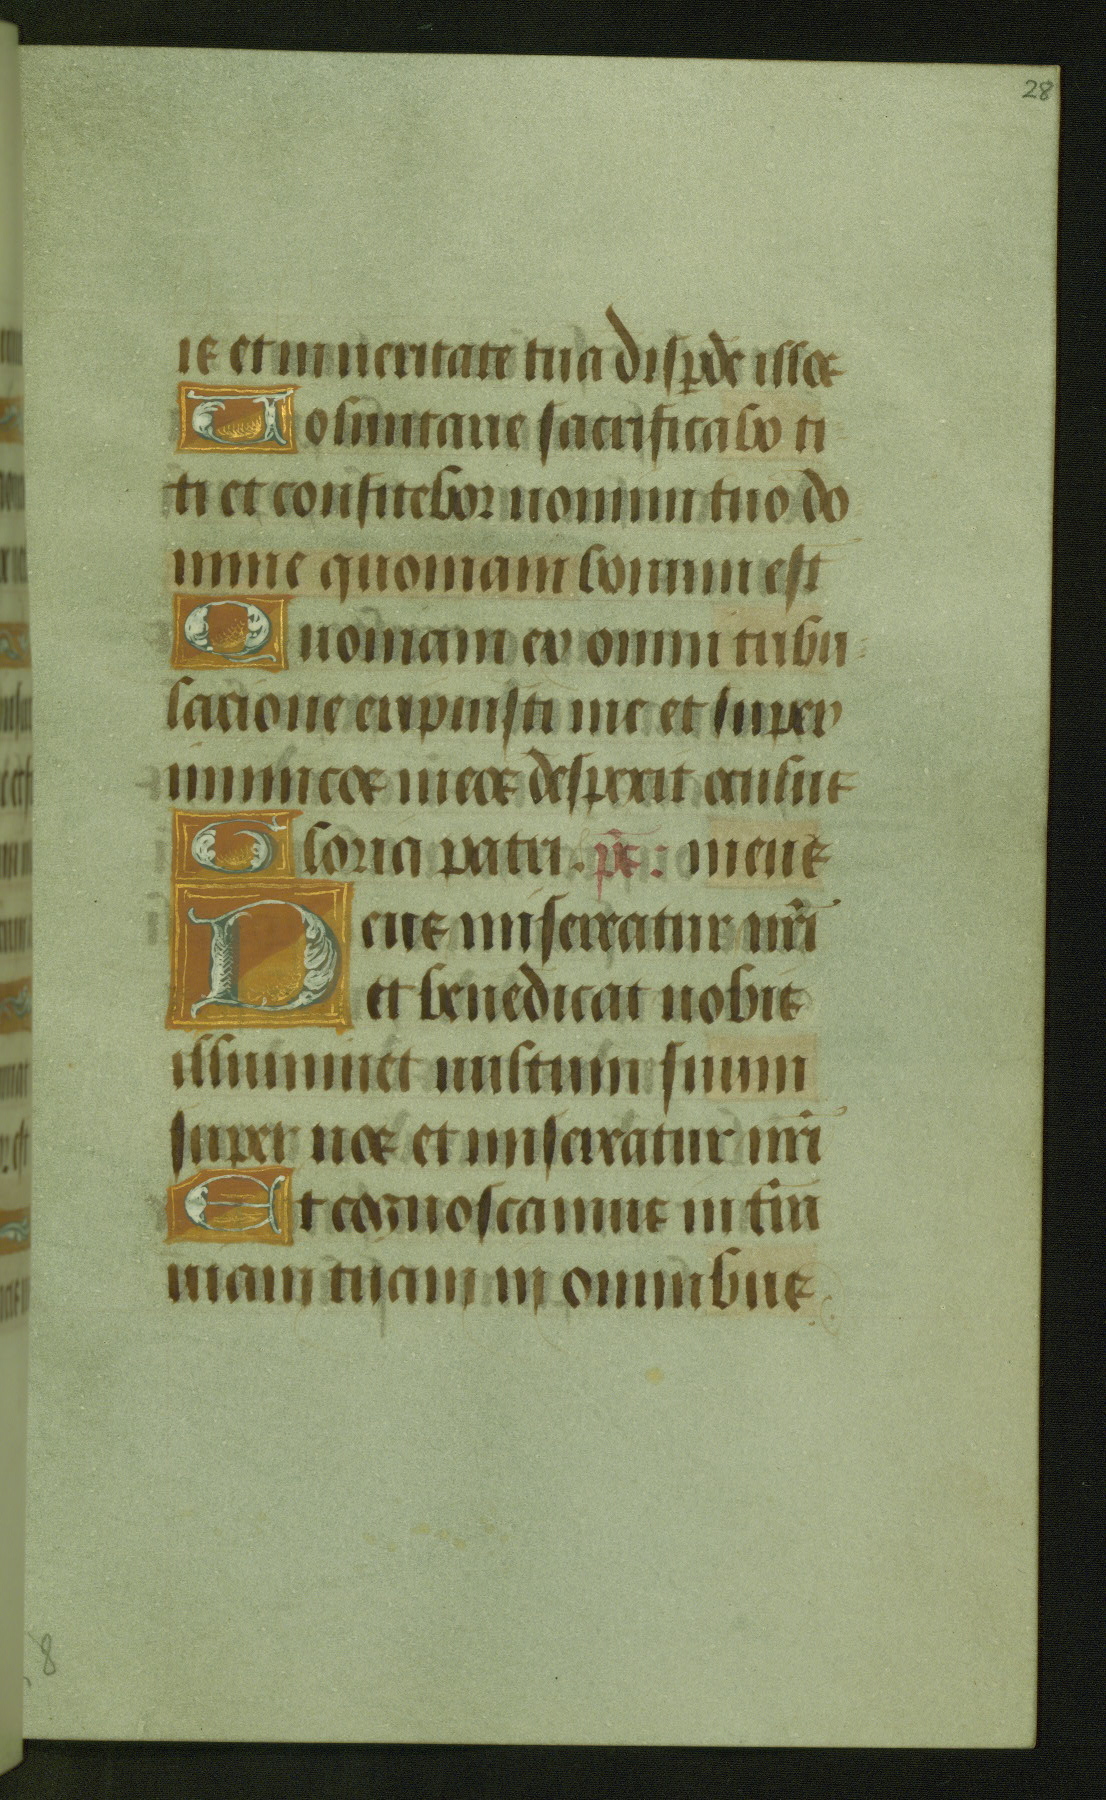 28
is et in veritate tua disp̲de illos
Voluntarie sacrificabo ti
bi et confitebor nomini tuo do
mine quoniam bonum est
Quoniam ex omni tribu
lacione eripuisti me et super
inimicos meos despexit oculus
Gloria patri. ps̄: meus
Deus misereatur nr̄i
et benedicat nobis
illuminet vultum suum
super nos et misereatur nr̄i
Et cognoscamus in tr̄a
viam tuam in omnibus
8